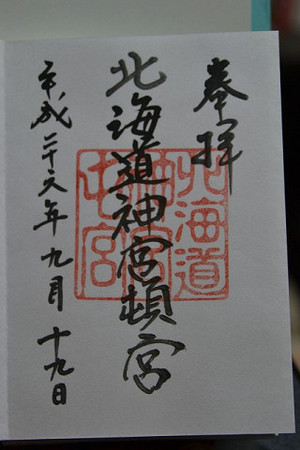 奉拝
北海道神宮頓宮
平成二十六年九月十九日
北海道
神宮
頓宮